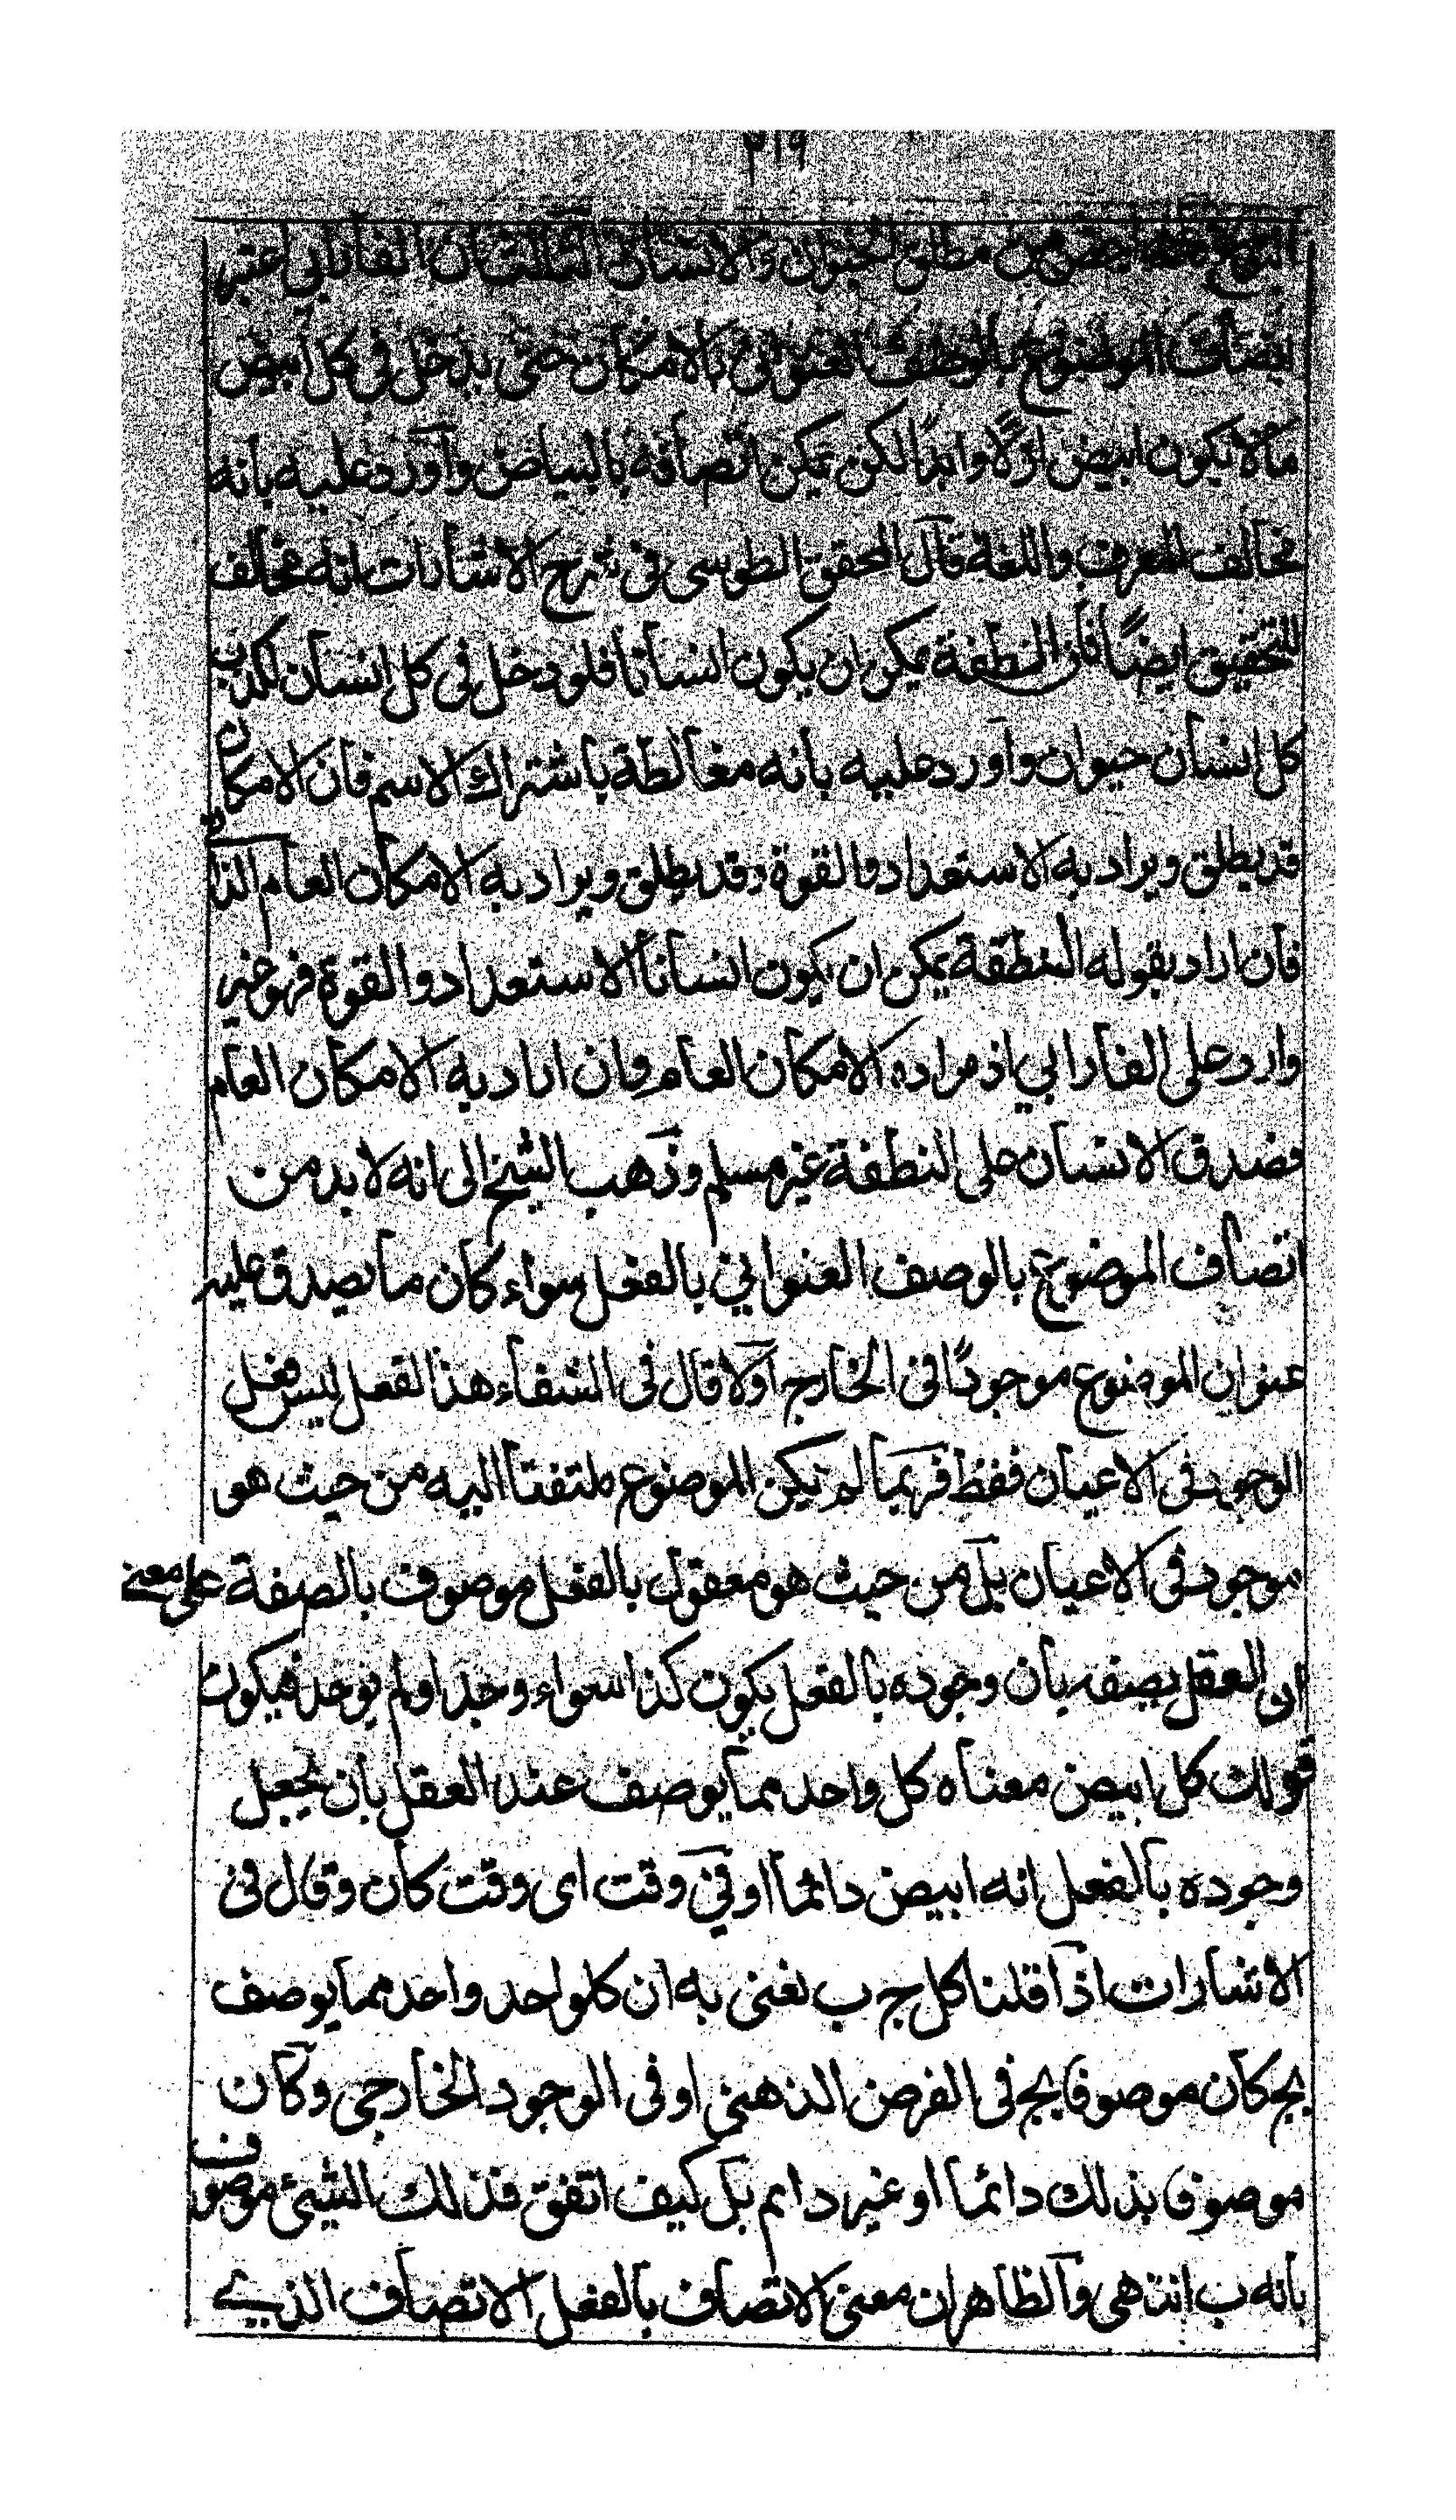 ٢١٩
اخص من مطلق الحيوان والانسان الثالث ان الفارابي اعتبر
اتصاف الموضوع بالوصف العنواني بالامكان حتى يدخل في كل ابيض
مالا يكون ابيض ازلا وابدا لكن يمكن اتصافه بالبياض واورد عليه بانه
مخالف للعرف واللغة قال المحقق الطوسي في شرح الاشارات انه مخالف
للتحقيق ايضا فان النطفة يمكن ان يكون انسانا فلو دخل في كل انسان لكذب
كل انسان حيوان واورد عليه بانه مغالطة باشتراك الاسم فان الامكان
قد يطلق ويراد به الاستعداد والقوة وقد يطلق ويراد به الامكان العام الذاتي
فان اراد بقوله النطفة يمكن ان يكون انسانا الاستعداد والقوة فهو غير
وارد على الفارابي اذ مراده الامكان العام وان اراد به الامكان العام
فصدق الانسان على النطفة غير مسلم وذهب الشيخ الى انه لا بد من
اتصاف الموضوع بالوصف العنواني بالفعل سواء كان ما يصدق عليه
عنوان الموضوع موجودا في الخارج اولا قال في الشفاء هذا الفعل ليس فعل
الوجود في الاعيان فقط فربما لم يكن الموضوع ملتفتا اليه من حيث هو
موجود في الاعيان بل من حيث هو معقول بالفعل موصوف بالصفة على معنى
ان العقل يصفه بان وجوده بالفعل يكون كذا سواء وجد او لم يوجد فيكون
قولك كل ابيض معناه كل واحد مما يوصف عند العقل بان يجعل
وجوده بالفعل انه ابيض دائما او في وقت اى وقت كان وقال في
الاشارات اذا قلنا كل ج ب نعني به ان كلواحد واحد مما يوصف
بج كان موصوفا بج في الفرض الذهني او في الوجود الخارجي وكان
موصوفا بذلك دائما او غير دائم بل كيف اتفق فذلك الشيئ موصوف
بانه ب انتهى والظاهر ان معنى الاتصاف بالفعل الاتصاف الذي